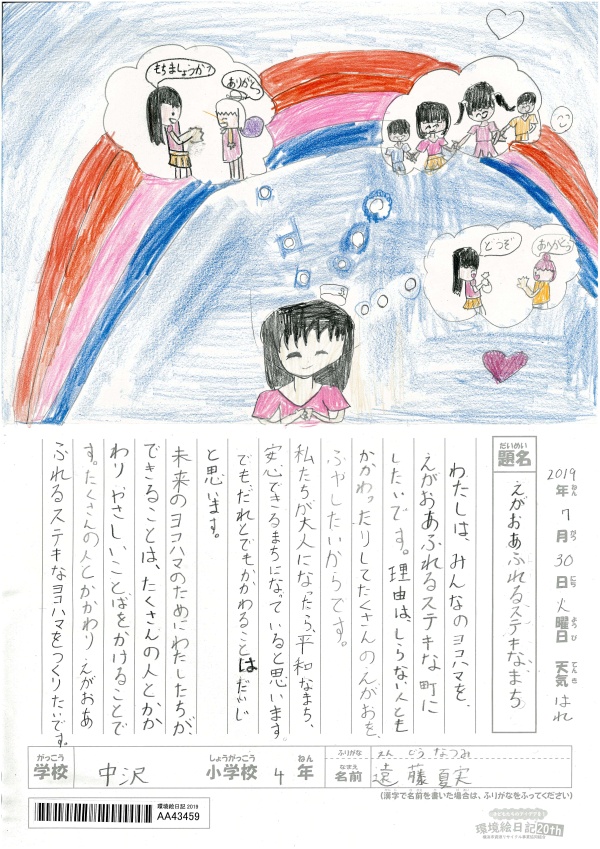 もちましょうか?
ありがとう
どうぞ
ありがとう
2019年 7月 30日 火曜日 天気 はれ
ねん がつ にち ようび てんき
だいめい
題名
えがおあふれるステキなまち
わたしは、みんなのヨコハマを、
えがおあふれるステキな町に
したいです。理由は、しらない人とも
かかわったりしてたくさんのえがおを、
ふやしたいからです。
私たちが大人になったら、平和なまち、
安心できるまちになっていると思います
でも、だれとでもかかわることはだいじ
と思います。
未来のヨコハマのためにわたしたちが、
できることは、たくさんの人とかか
わり、やさしいことばをかけることで
す。たくさんの人とかかわり えがおあ
ふれるステキなヨコハマをつくりたいです。
がっこう しょうがっこう ねん
学校 中沢 小学校 4年
ふりがな えん どう なつみ
なまえ
名前 遠藤 夏実
(漢字で名前を書いた場合は、ふりがなをふってください)
環境絵日記 2019
AA43459
環境絵日記20th